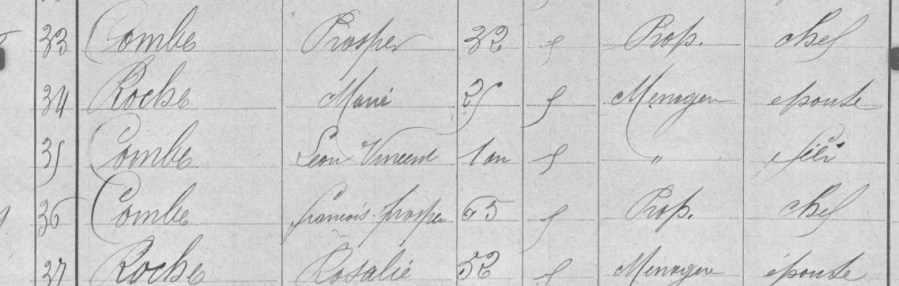 33 Combe Prosper 32 f Prop. chef
34 Roche Marie 25 f Ménagère épouse
35 Combe Léon Vincent 1 an f " fils
36 Combe françois-prosper 65 f Prop. chef
37 Roche Rosalie 52 f Ménagère épouse